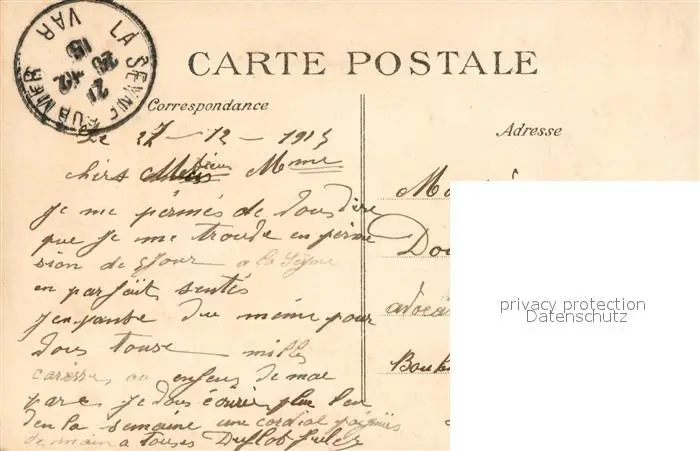 LA SEYNE SUR MER
VAR
21 12
15
CARTE POSTALE
Correspondance
Adresse
Le 27 - 12 - 1915
chers Mme
je me pérmés de vous dire
que je me trouve en pérmi
sion de 9 jour a la Séyne
en parfait sentés
j'en pansse du même pour
vous tousse milles
caresse au enfens de ma
par je vous écrire plus lon
den la semaine une cordial poignés
de main a touses Duflot Jules
Dou
avoca
Boule
privacy protection
Datenschutz